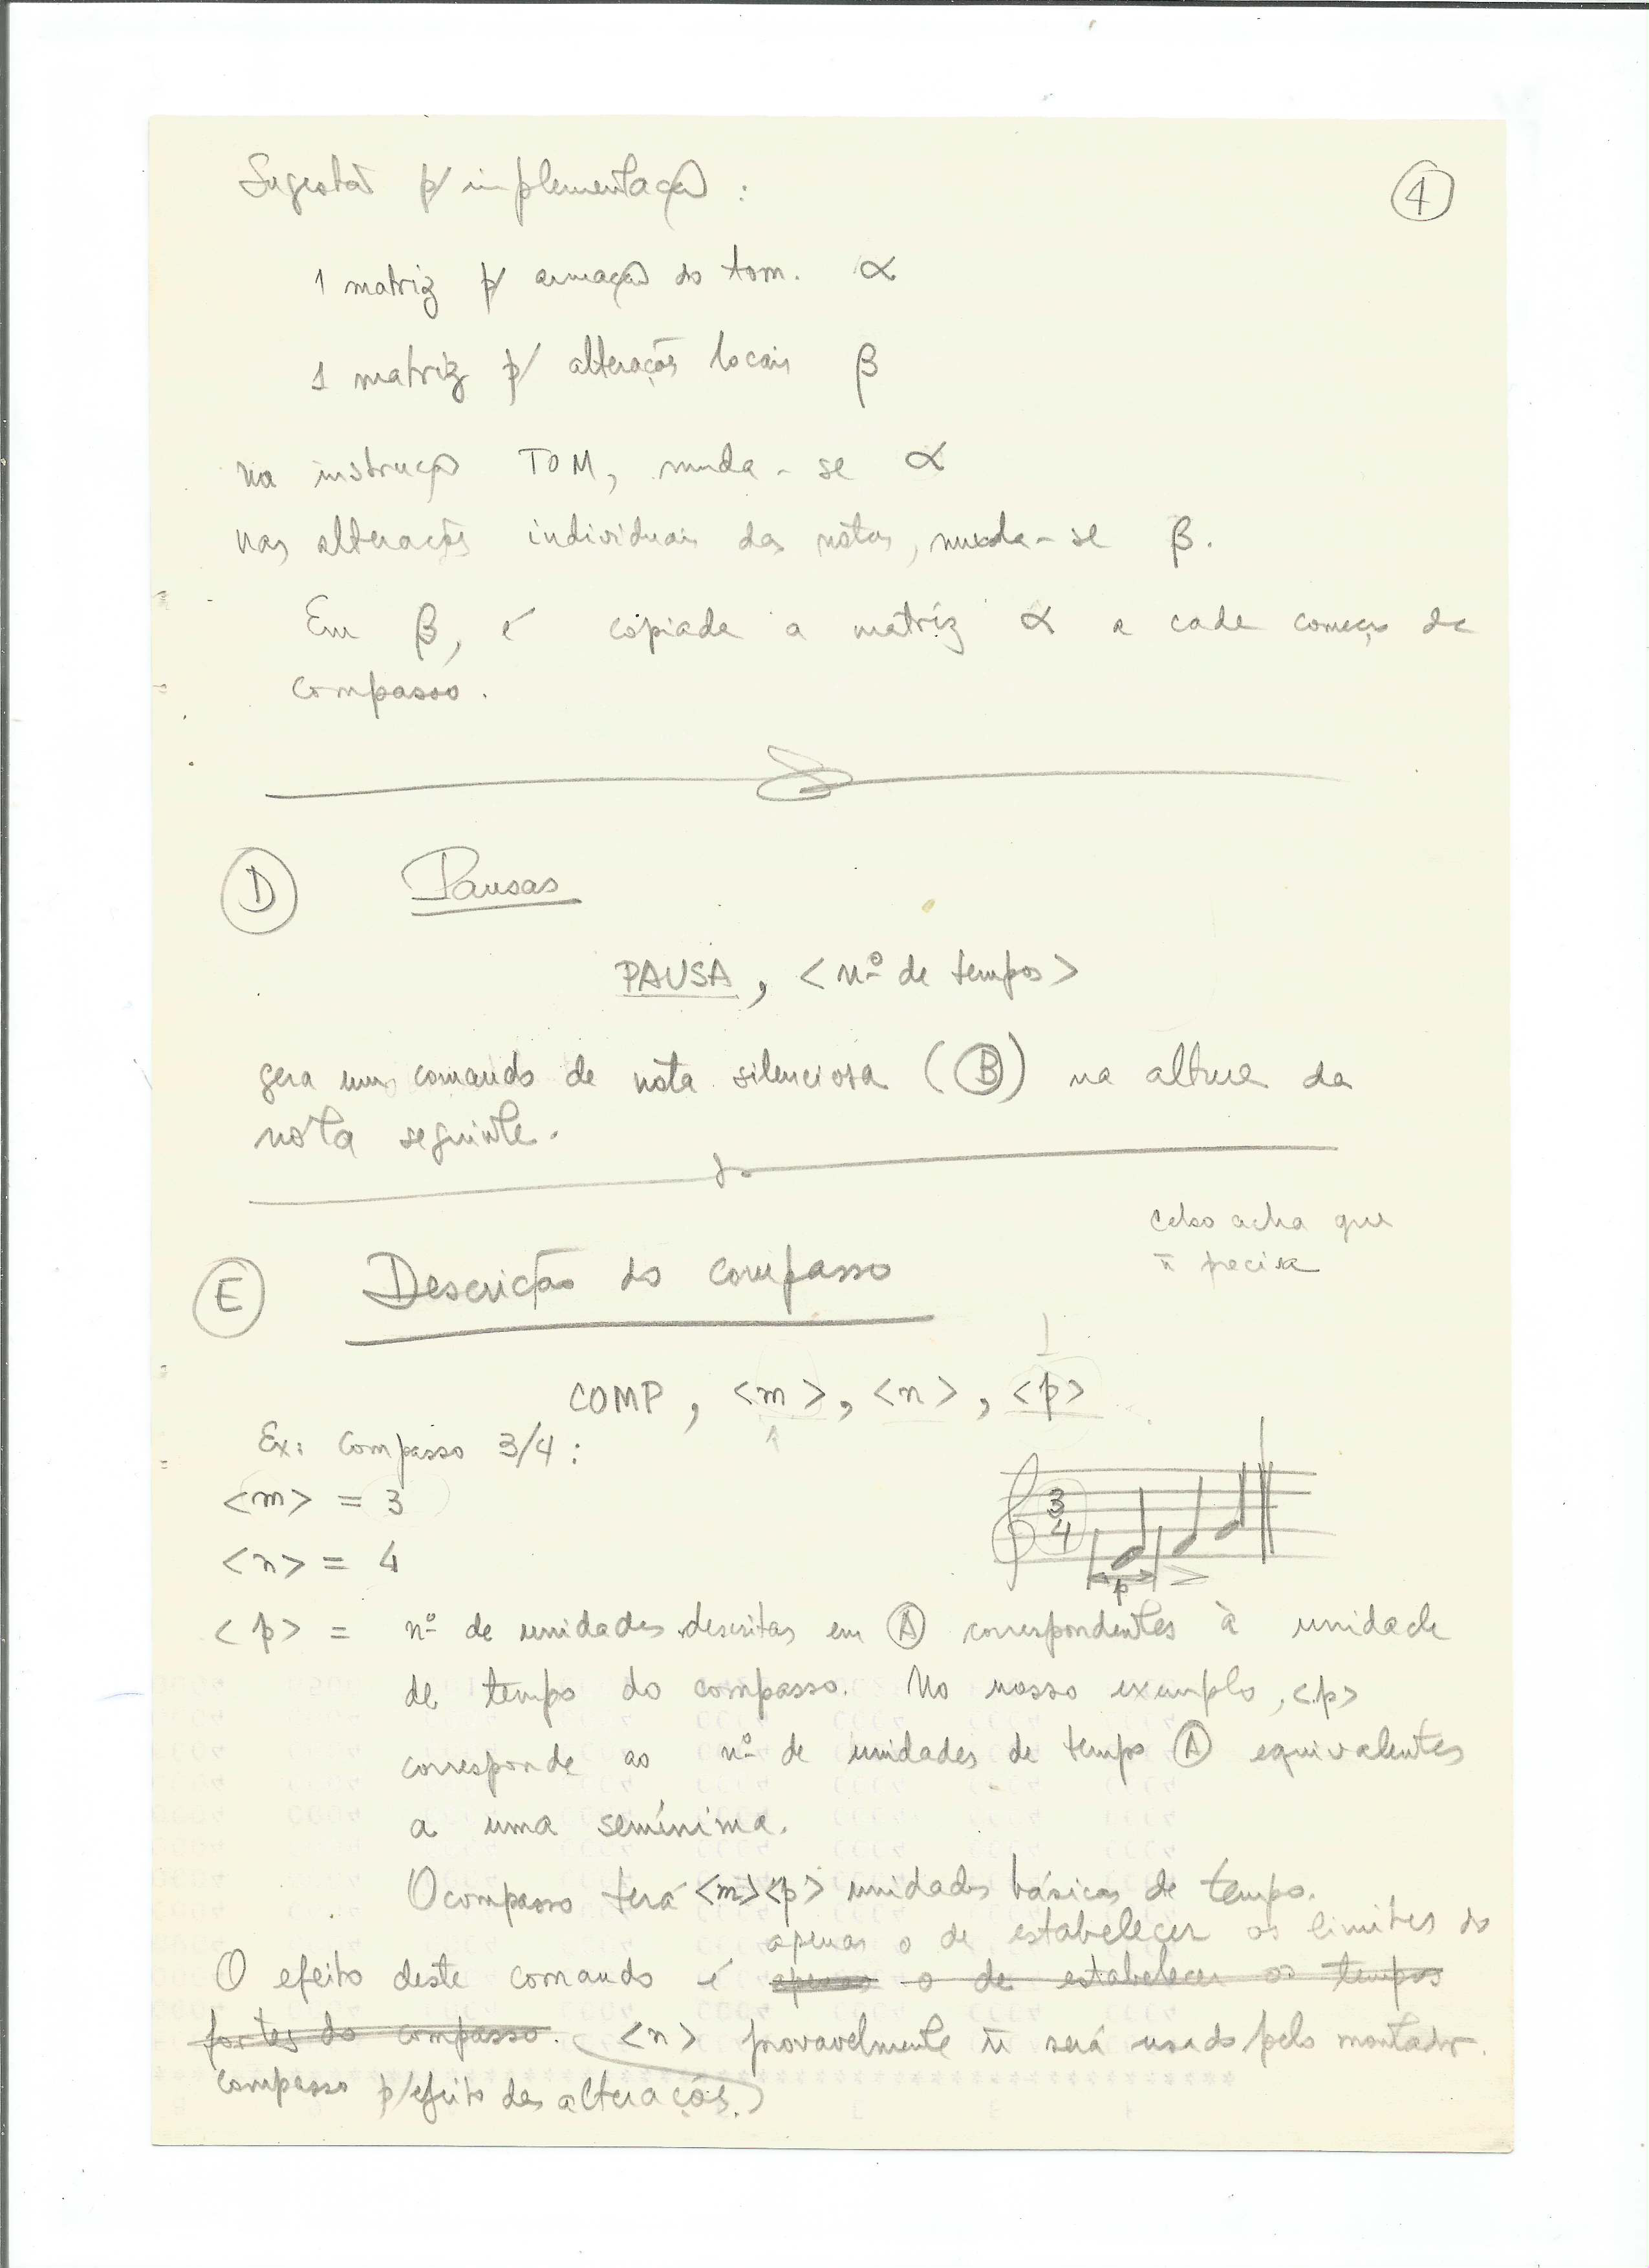 Sugestão p/ implementação :
4
1 matriz p/ armação do tom. α
1 matriz p/ alterações locais β
na instrução TOM, muda-se α
nas alterações individuais das notas, muda-se β.
Em β, é copiada a matriz α a cada começo de
compasso.
D Pausas
PAUSA, <nº de tempos>
gera um comando de nota silenciosa (B) na altura da
nota seguinte.
Celso acha que
ñ precisa
E Descrição do compasso
COMP, <m>, <n>, <p>
1
Ex: Compasso 3/4 :
<m> = 3
<n> = 4
3
4
p
<p> = nº de unidades descritas em A correspondentes à unidade
de tempo do compasso. No nosso exemplo, <p>
corresponde ao nº de unidades de tempo A equivalentes
a uma semínima.
O compasso terá <m><p> unidades básicas de tempo.
apenas o de estabelecer os limites do
O efeito deste comando é apenas o de estabelecer os tempos
fortes do compasso. <n> provavelmente ñ será usado pelo montador.
compasso p/ efeito das alterações.